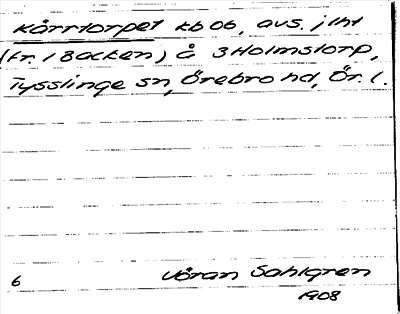 Kärrtorpet kb 06, avs. j lht
(Fr. 1 Backen) å 3 Holmstorp,
Tysslinge sn, Örebro hd, Ör. l.
6 Göran Sahlgren
1908